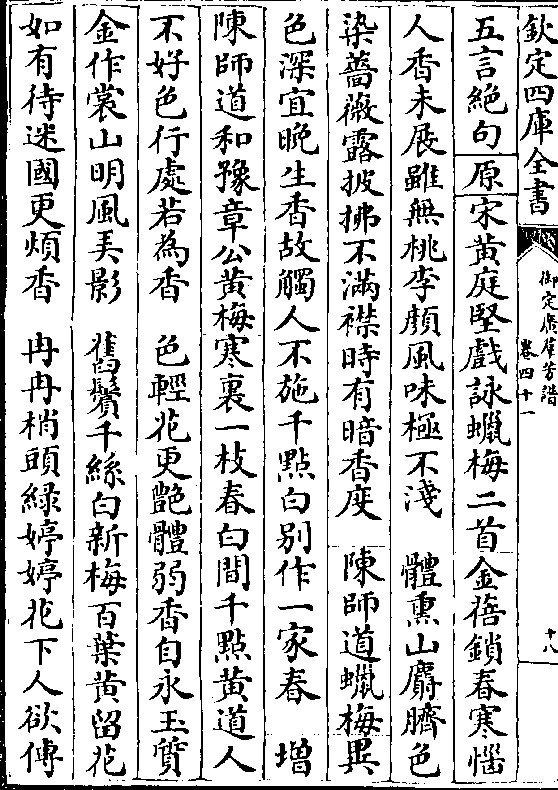 欽定四庫全書
御定廣羣芳譜
卷四十一
十八
五言絶句原宋黄庭堅戲詠蠟梅二首金蓓鎖春寒惱
人香未展雖無桃李顔風味極不淺 體熏山麝臍色
染薔薇露披拂不滿襟時有暗香度 陳師道蠟梅異
色深宜晚生香故觸人不施千點白别作一家春 增
陳師道和豫章公黄梅寒裏一枝春白間千點黄道人
不好色行處若為香 色輕花更艶體弱香自永玉質
金作裳山明風弄影 舊鬢千絲白新梅百葉黄留花
如有待迷國更煩香 冉冉梢頭緑婷婷花下人欲傳